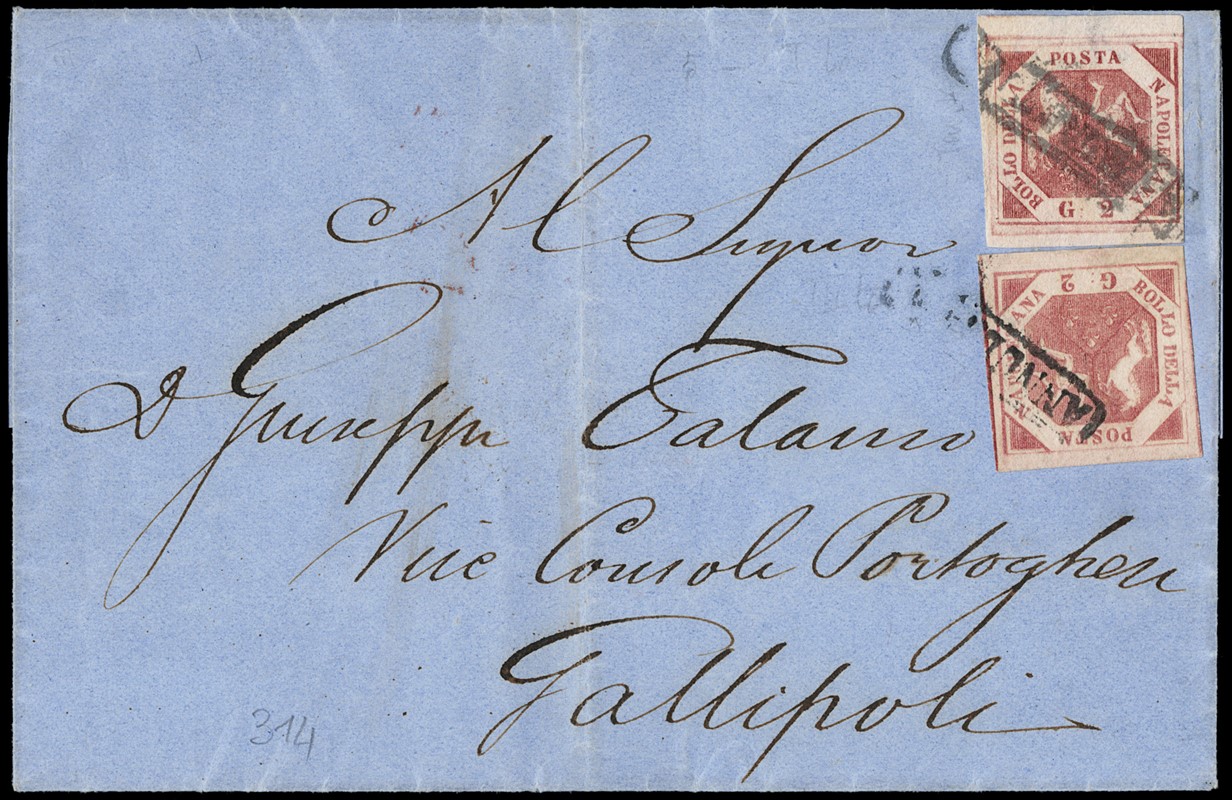 POSTA
NAPOLETANA
BOLLO DELLA
G 2
Al Signor
G 2
BOLLO DELLA
POSTA
ANNUL
D Giuseppe Talamo
Vice Console Portoghese
Gallipoli
314